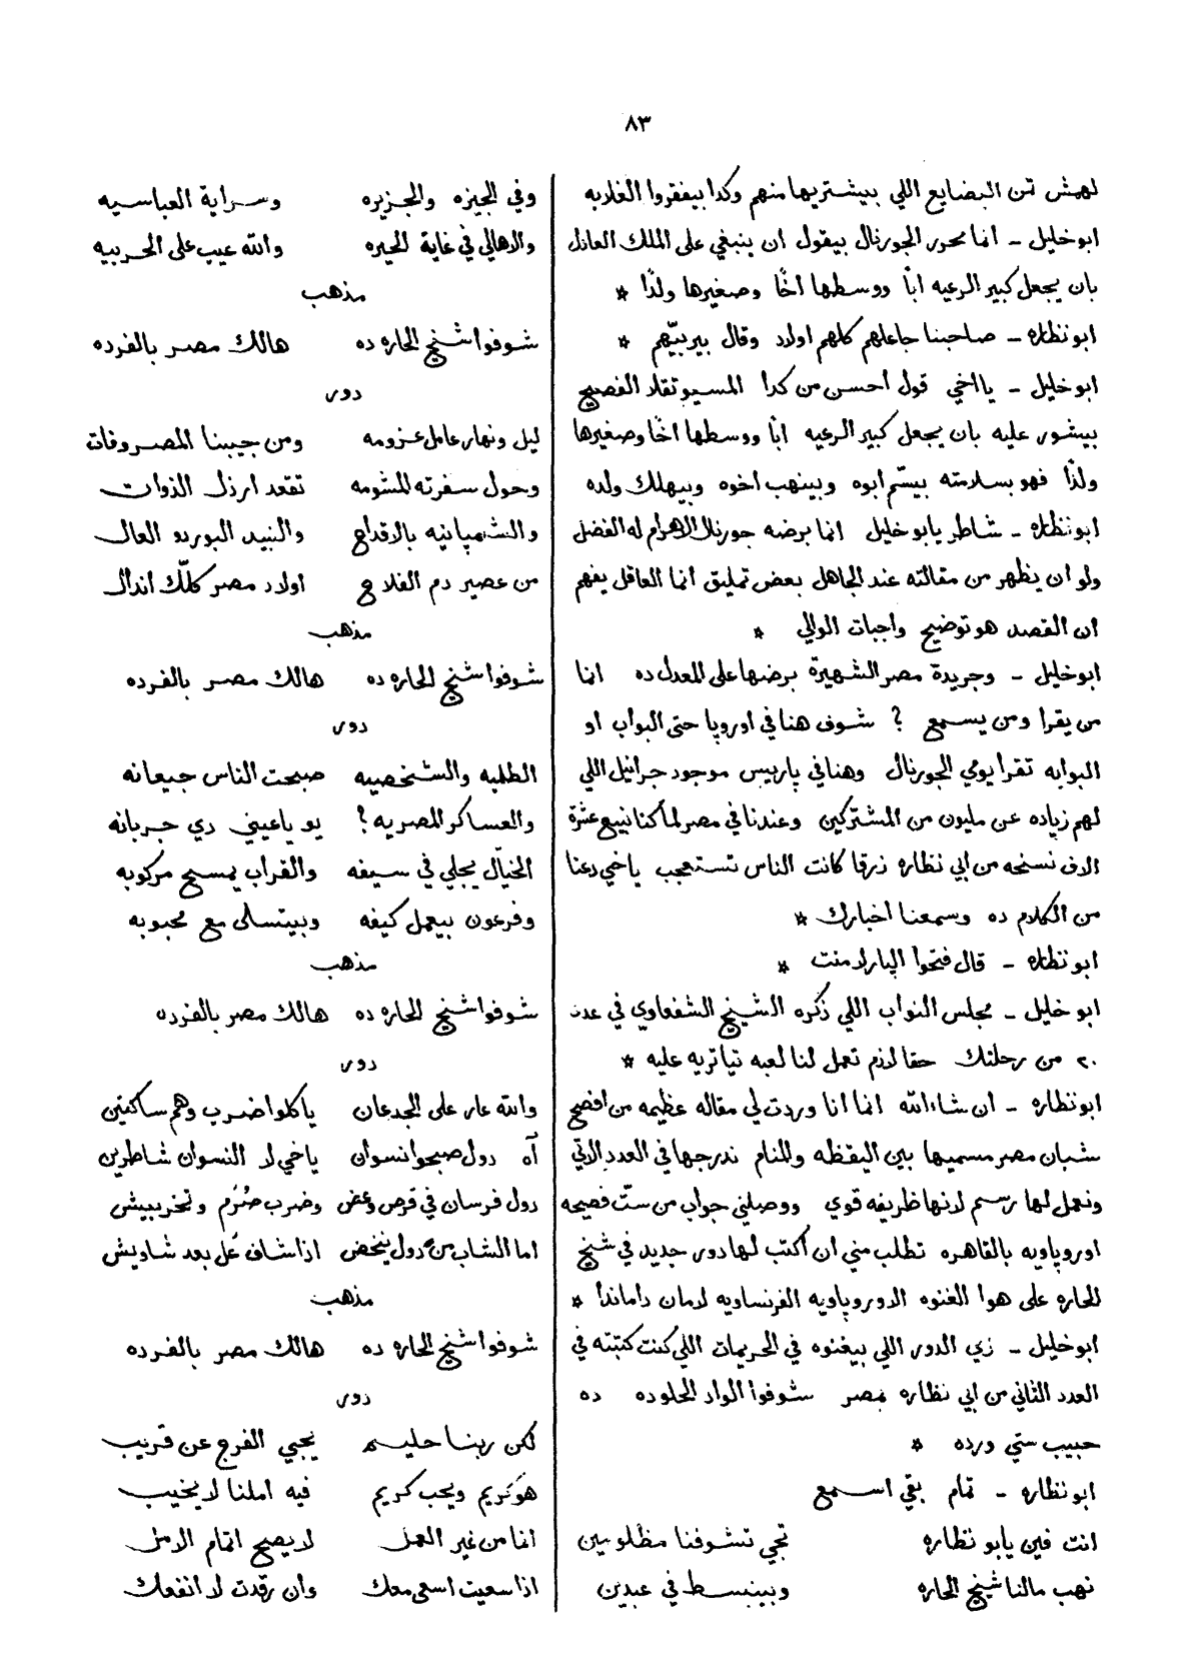 ٨٣
لهمش تمن البضايع اللي بيشتريها منهم وكدا بيفقروا الغلابه
ابو خليل ـ انما محرر الجورنال بيقول ان ينبغي على الملك العادل
بان يجعل كبير الرعيه اباً ووسطها اخًا وصغيرها ولدًا *
ابو نظاره ـ صاحبنا جاعلهم كلهم اولاد وقال بيربيّهم *
ابو خليل ـ يا اخي قول احسن من كدا المسيو تقلا الفصيح
بيشور عليه بان يجعل كبير الرعيه اباً ووسطها اخًا وصغيرها
ولدًا فهو بسلامته بيشّم ابوه وبينهب اخوه وبيهلك ولده
ابو نظاره ـ شاطر يابو خليل انما برضه جورنال الاهرام له الفضل
ولو ان يظهر من مقالته عند الجاهل بعض تمليق انما العاقل يفهم
ان القصد هو توضيح واجبات الوالي *
ابو خليل ـ وجريدة مصر الشهيرة برضها على المعدل ده انما
من يقرا ومن يسمع ? شوف هنا في اوروپا حتى البواب او
البوابه تقرا يومي الجورنال وهنا في پاريس موجود جرانيل اللي
لهم زياده عن مليون من المشتركين وعندنا في مصر لما كنا نبيع عشرة
الاف نسخه من ابي نظاره زرقا كانت الناس تستعجب ياخي دعنا
من الكلام ده وسمعنا اخبارك *
ابو نظاره ـ قال فتحوا الپارلامنت *
ابو خليل ـ مجلس النواب اللي ذكره الشيخ الشفعاوي في عدد
٢٠ من رحلتك حقا لازم تعمل لنا لعبه تياتريه عليه *
ابو نظاره ـ ان شاء الله انما انا وردت لي مقاله عظيمه من افصح
شبان مصر مسميها بين اليقظه والمنام ندرجها في العدد الاتي
ونعمل لها رسم لانها ظريفه قوي ووصلني جواب من ستّ فصيحه
اوروپاويه بالقاهره تطلب مني ان اكتب لها دور جديد في شيخ
الحاره على هوا الغنوه الاوروپاويه الفرنساويه لامان داماندا *
ابو خليل ـ زي الدور اللي بيغنوه في الحريمات اللي كنت كتبته في
العدد الثاني من ابي نظاره مصر شوفوا الواد الحلو ده ده
حبيب ستي ورده *
ابو نظاره ـ تمام بقي اسمع
انت فين يابو نظاره تجي تشوفنا مظلومين
نهب مالنا شيخ الحاره وبينبسط في عبدين
وفي الجيزه والجزيره وسراية العباسيه
والاهالي في غاية الحيره والله عيب على الحربيه
مذهب
شوفوا شيخ الحاره ده هالك مصر بالفرده
دور
ليل ونهار عامل عزومه ومن جيبنا المصروفات
وحول سفرته المشومه تقعد ارذل الذوات
والشمپانيه بالاقداح والنبيد البوردو العال
من عصير دم الفلاح اولاد مصر كلّك اندال
مذهب
شوفوا شيخ الحاره ده هالك مصر بالفرده
دور
الطلبه والشخصيه صبحت الناس جيعانه
والعساكر المصريه ? يو ياعيني دي جربانه
الخيّال يجلي في سيفه والقراب يمسح مركوبه
وفرعون بيعمل كيفه وبيتسلى مع محبوبه
مذهب
شوفوا شيخ الحاره ده هالك مصر بالفرده
دور
والله عار على الجدعان ياكلوا ضرب وهم ساكتين
آه دول صبحوا نسوان ياخي لا النسوان شاطرين
دول فرسان في قرص وعض وضرب صُرَم وتخربيش
اما الشاب من دول ينخض اذا شاف عَل بعد شاويش
مذهب
شوفوا شيخ الحاره ده هالك مصر بالفرده
دور
لكن ربنا حليم يجي الفرج عن قريب
هو كريم ويحب كريم فيه املنا لا يخيب
انما من غير العمل لا يصح اتمام الامل
اذا سعيت اسعى معك وان رقدت لا انفعك